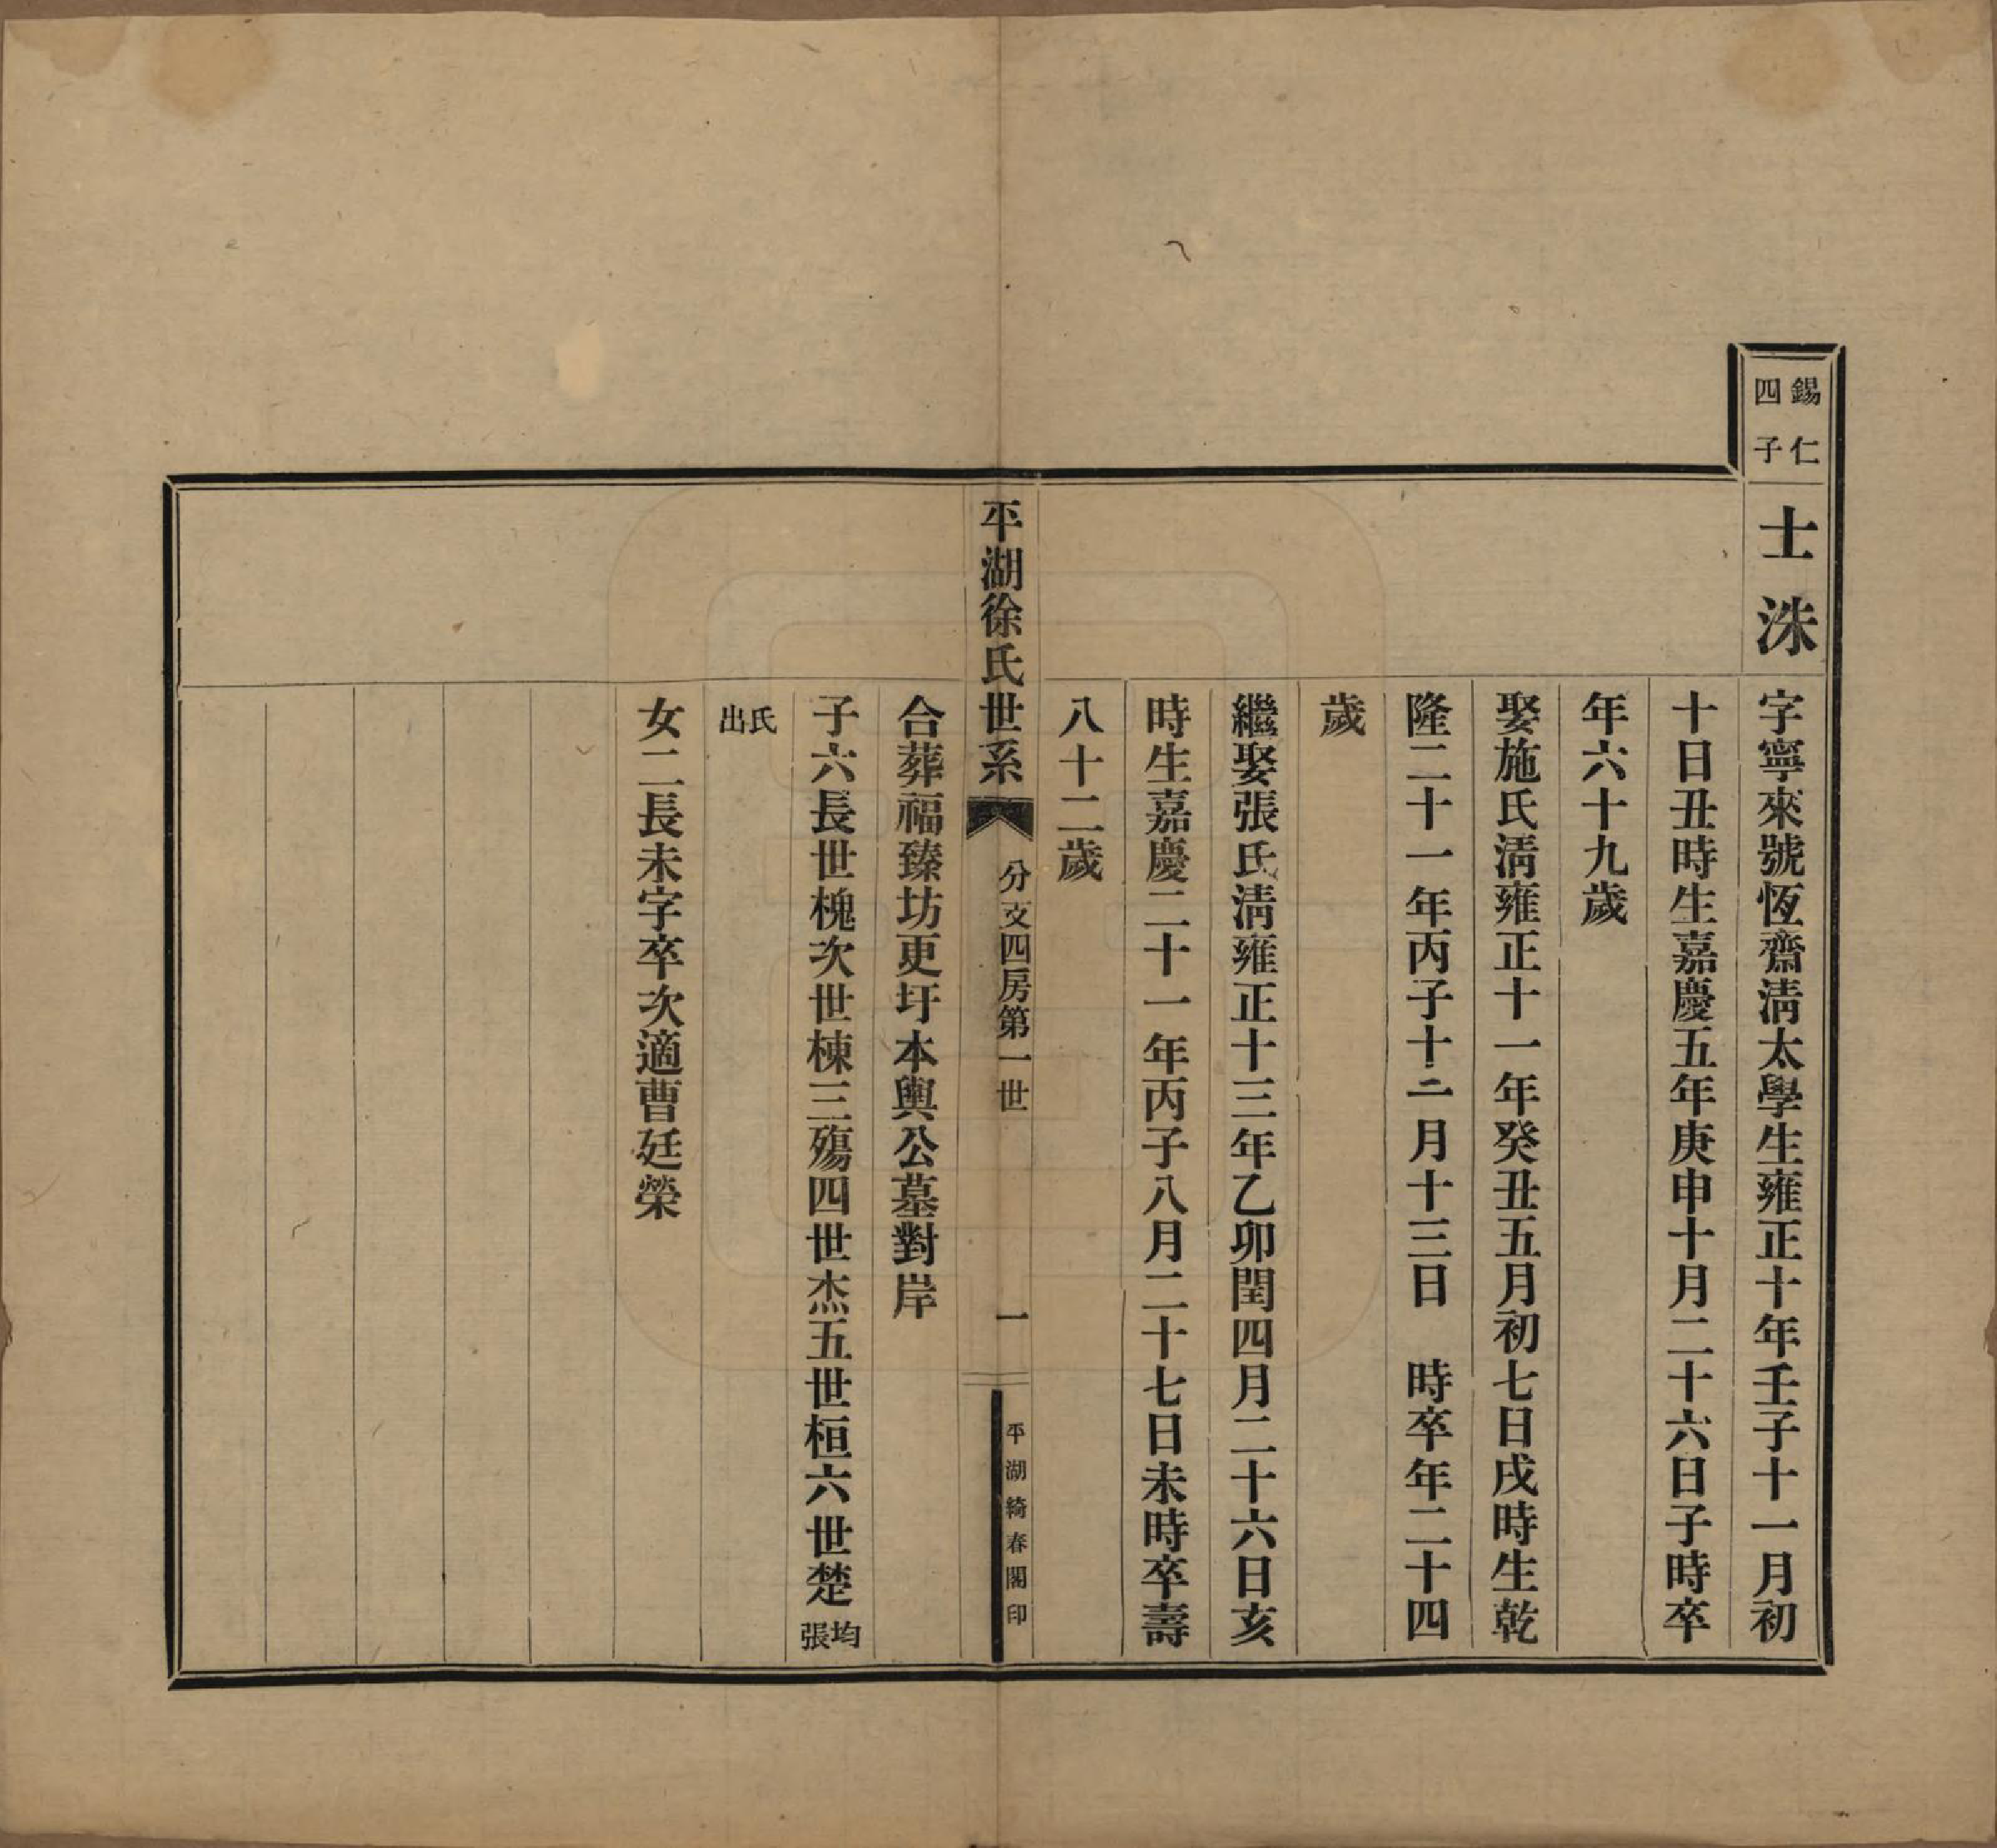 錫仁
四子
士洙
字寧來號恆齋淸太學生雍正十年壬子十一月初
十日丑時生嘉慶五年庚申十月二十六日子時卒
年六十九歲
娶施氏淸雍正十一年癸丑五月初七日戌時生乾
隆二十一年丙子十二月十三日　時卒年二十四
歲
繼娶張氏淸雍正十三年乙卯閏四月二十六日亥
時生嘉慶二十一年丙子八月二十七日未時卒壽
八十二歲
平湖徐氏世系
分支四房第一世
一
平湖綺春閣印
合葬福臻坊更圩本輿公墓對岸
子六長世槐次世棟三殤四世杰五世桓六世楚均張
氏出
女二長未字卒次適曹廷榮